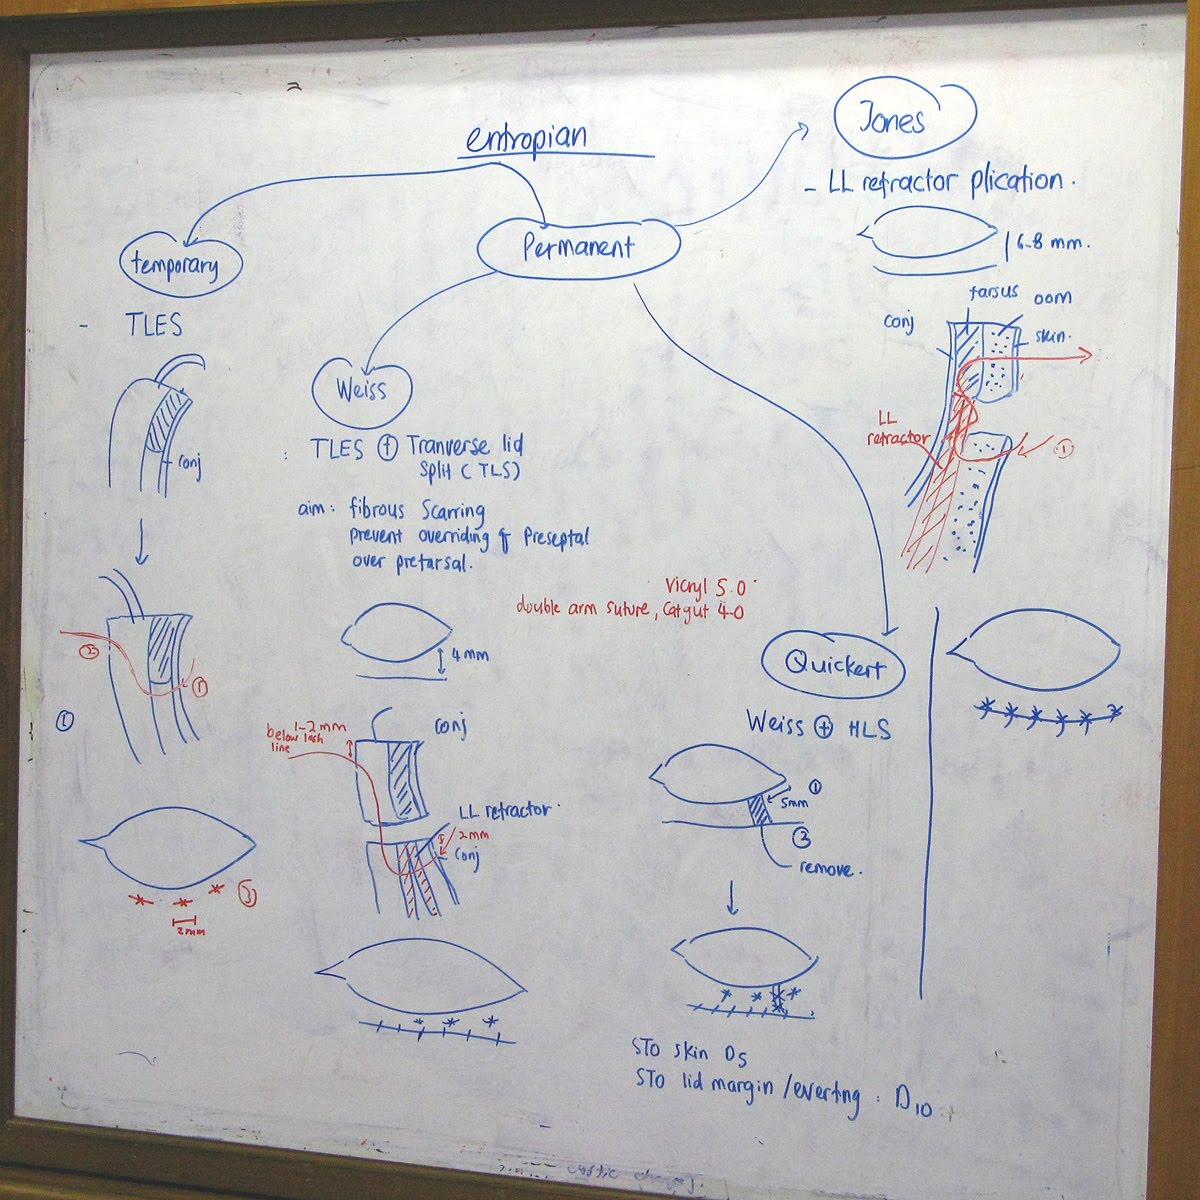 entropian
Jones
- LL refractor plication.
6-8 mm.
tarsus
oom
conj
skin.
LL
refractor
①
Permanent
temporary
- TLES
conj
②
①
①
③
2mm
Weiss
: TLES ⊕ Tranverse lid
split (TLS)
aim: fibrous scarring
prevent overriding of Preseptal
over pretarsal.
4 mm
1-2mm
below lash
line
conj
LL refractor
2mm
conj
Vicryl 5.0
double arm suture, catgut 4-0
Quickert
Weiss ⊕ HLS
①
5mm
②
remove.
STO skin D5
STO lid margin/evertng : D10